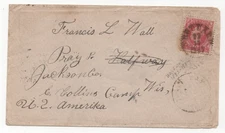 Francis L. Wall
Pray Halfway
Jacksonlin
Collins Camp Wis,
U.S. Amerika